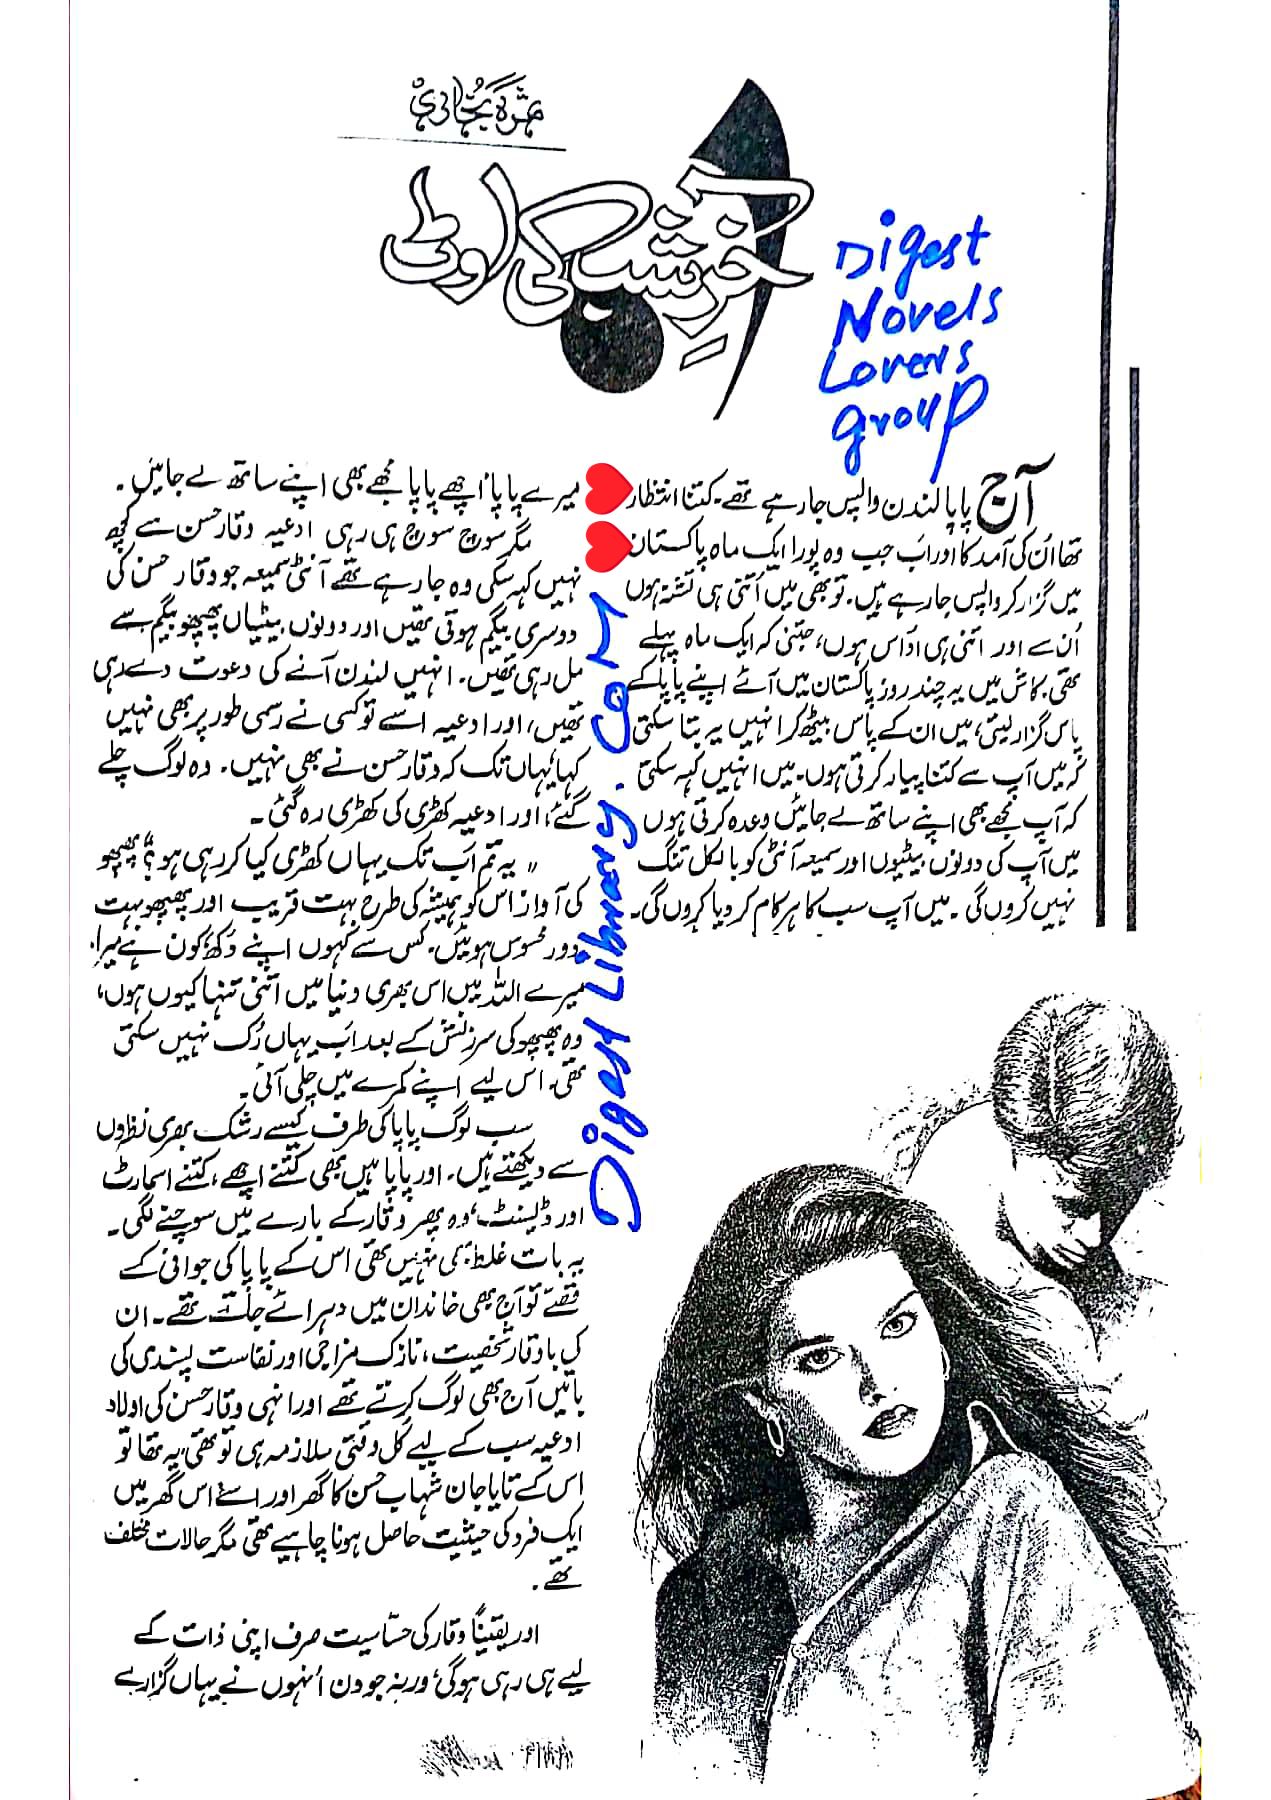 ثمرہ بخاری
خرِشب کی اوٹ
Digest
Novels
Lovers
group
Digest Library.com
آج پاپا لندن واپس جا رہے تھے۔ کتنا انتظار
تھا اُن کی آمد کا اور اَب جب وہ پورا ایک ماہ پاکستان
میں گزار کر واپس جا رہے ہیں۔ تو بھی میں اُتنی ہی تشنہ ہوں
اُن سے اور اتنی ہی اُداس ہوں، جتنی کہ ایک ماہ پہلے
تھی۔ کاش میں یہ چند روز پاکستان میں آئے اپنے پاپا کے
پاس گزار لیتی، میں ان کے پاس بیٹھ کر انہیں یہ بتا سکتی
کہ میں آپ سے کتنا پیار کرتی ہوں۔ میں انہیں کہہ سکتی
کہ آپ مجھے بھی اپنے ساتھ لے جائیں وعدہ کرتی ہوں
میں آپ کی دونوں بیٹیوں اور سمیعہ آنٹی کو بالکل تنگ
نہیں کروں گی۔ میں آپ سب کا ہر کام کر دیا کروں گی۔
میرے پاپا، اچھے پاپا مجھے بھی اپنے ساتھ لے جائیں۔
مگر سوچ سوچ ہی رہی ادعیہ وقار حسن سے کچھ
نہیں کہہ سکی وہ جا رہے تھے آنٹی سمیعہ جو وقار حسن کی
دوسری بیگم ہوتی تھیں اور دونوں بیٹیاں پھپھو بیگم سے
مل رہی تھیں۔ انہیں لندن آنے کی دعوت دے رہی
تھیں، اور ادعیہ اسے تو کسی نے رسمی طور پر بھی نہیں
کہا، یہاں تک کہ وقار حسن نے بھی نہیں۔ وہ لوگ چلے
گئے، اور ادعیہ کھڑی کی کھڑی رہ گئی۔
"یہ تم اَب تک یہاں کھڑی کیا کر رہی ہو؟" پھپھو
کی آواز اس کو ہمیشہ کی طرح بہت قریب اور پھپھو بہت
دور محسوس ہوئیں۔ کس سے کہوں اپنے دُکھ، کون ہے میرا،
میرے اللہ میں اس بھری دنیا میں اتنی تنہا کیوں ہوں،
وہ پھپھو کی سرزنش کے بعد اَب یہاں رُک نہیں سکتی
تھی۔ اس لیے اپنے کمرے میں چلی آئی۔
سب لوگ پاپا کی طرف کیسے رشک بھری نظروں
سے دیکھتے ہیں۔ اور پاپا ہیں بھی کتنے اچھے، کتنے اسمارٹ
اور ڈیسنٹ، وہ پھر وقار کے بارے میں سوچنے لگی۔
یہ بات غلط بھی نہیں تھی اس کے پاپا کی جوانی کے
قصے تو آج بھی خاندان میں دہرائے جاتے تھے۔ ان
کی باوقار شخصیت، نازک مزاجی اور نفاست پسندی کی
باتیں آج بھی لوگ کرتے تھے اور انہی وقار حسن کی اولاد
ادعیہ سب کے لیے کُل وقتی ملازمہ ہی تو تھی، یہ تھا تو
اس کے تایا جان شہاب حسن کا گھر اور اسے اس گھر میں
ایک فرد کی حیثیت حاصل ہونا چاہیے تھی مگر حالات مختلف
تھے۔
اور یقیناً وقار کی حسّاسیت صرف اپنی ذات کے
لیے ہی رہی ہوگی، ورنہ جو دن اُنہوں نے یہاں گزارے